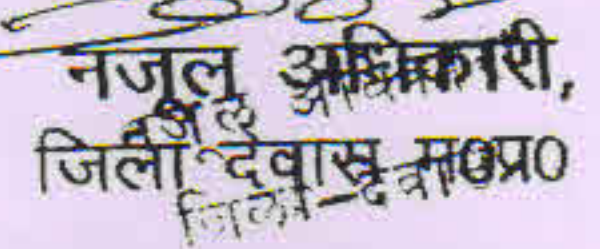 नजूल अधिकारी,
जिला देवास म0प्र0